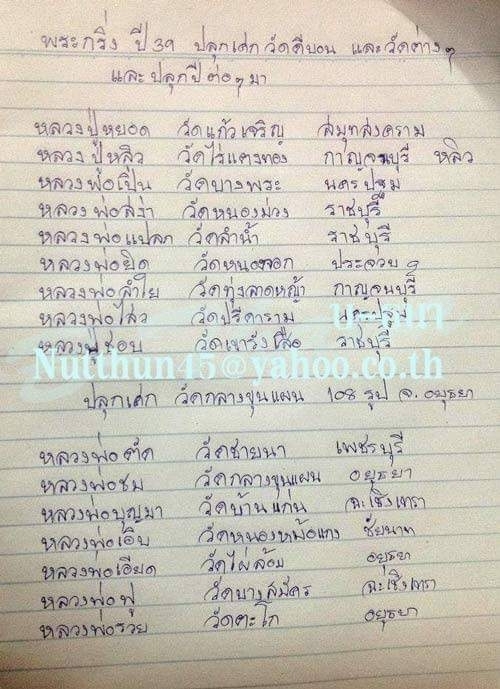 พระกริ่ง ปี 39 ปลุกเศก วัดดีบอน และวัดต่างๆ
และปลุกปีต่อๆมา
หลวงปู่หยอด วัดแก้วเจริญ สมุทสงคราม
หลวงปู่หลิว วัดไร่แตงทอง กาญจนบุรี หลิว
หลวงพ่อเปิ่น วัดบางพระ นครปฐม
หลวงพ่อสง่า วัดหนองม่วง ราชบุรี
หลวงพ่อแปลก วัดลำน้ำ ราชบุรี
หลวงพ่อยิด วัดหนองจอก ประจวบฯ
หลวงพ่อลำใย วัดทุ่งลาดหญ้า กาญจนบุรี
หลวงพ่อไสว วัดปรีดาราม นครปฐม
หลวงปู่ชอบ วัดเขารังเสือ ราชบุรี
Nutthun45@yahoo.co.th
ปลุกเศก วัดกลางขุนแผน 108 รูป จ. อยุธยา
หลวงพ่อตัด วัดชายนา เพชรบุรี
หลวงพ่อชม วัดกลางขุนแผน อยุธยา
หลวงพ่อบุญมา วัดบ้านแก่น ฉะเชิงเทรา
หลวงพ่อเอิบ วัดหนองหม้อแกง ชัยนาท
หลวงพ่อเอียด วัดไผ่ล้อม อยุธยา
หลวงพ่อฟู วัดบางสมัคร ฉะเชิงเทรา
หลวงพ่อรวย วัดตะโก อยุธยา